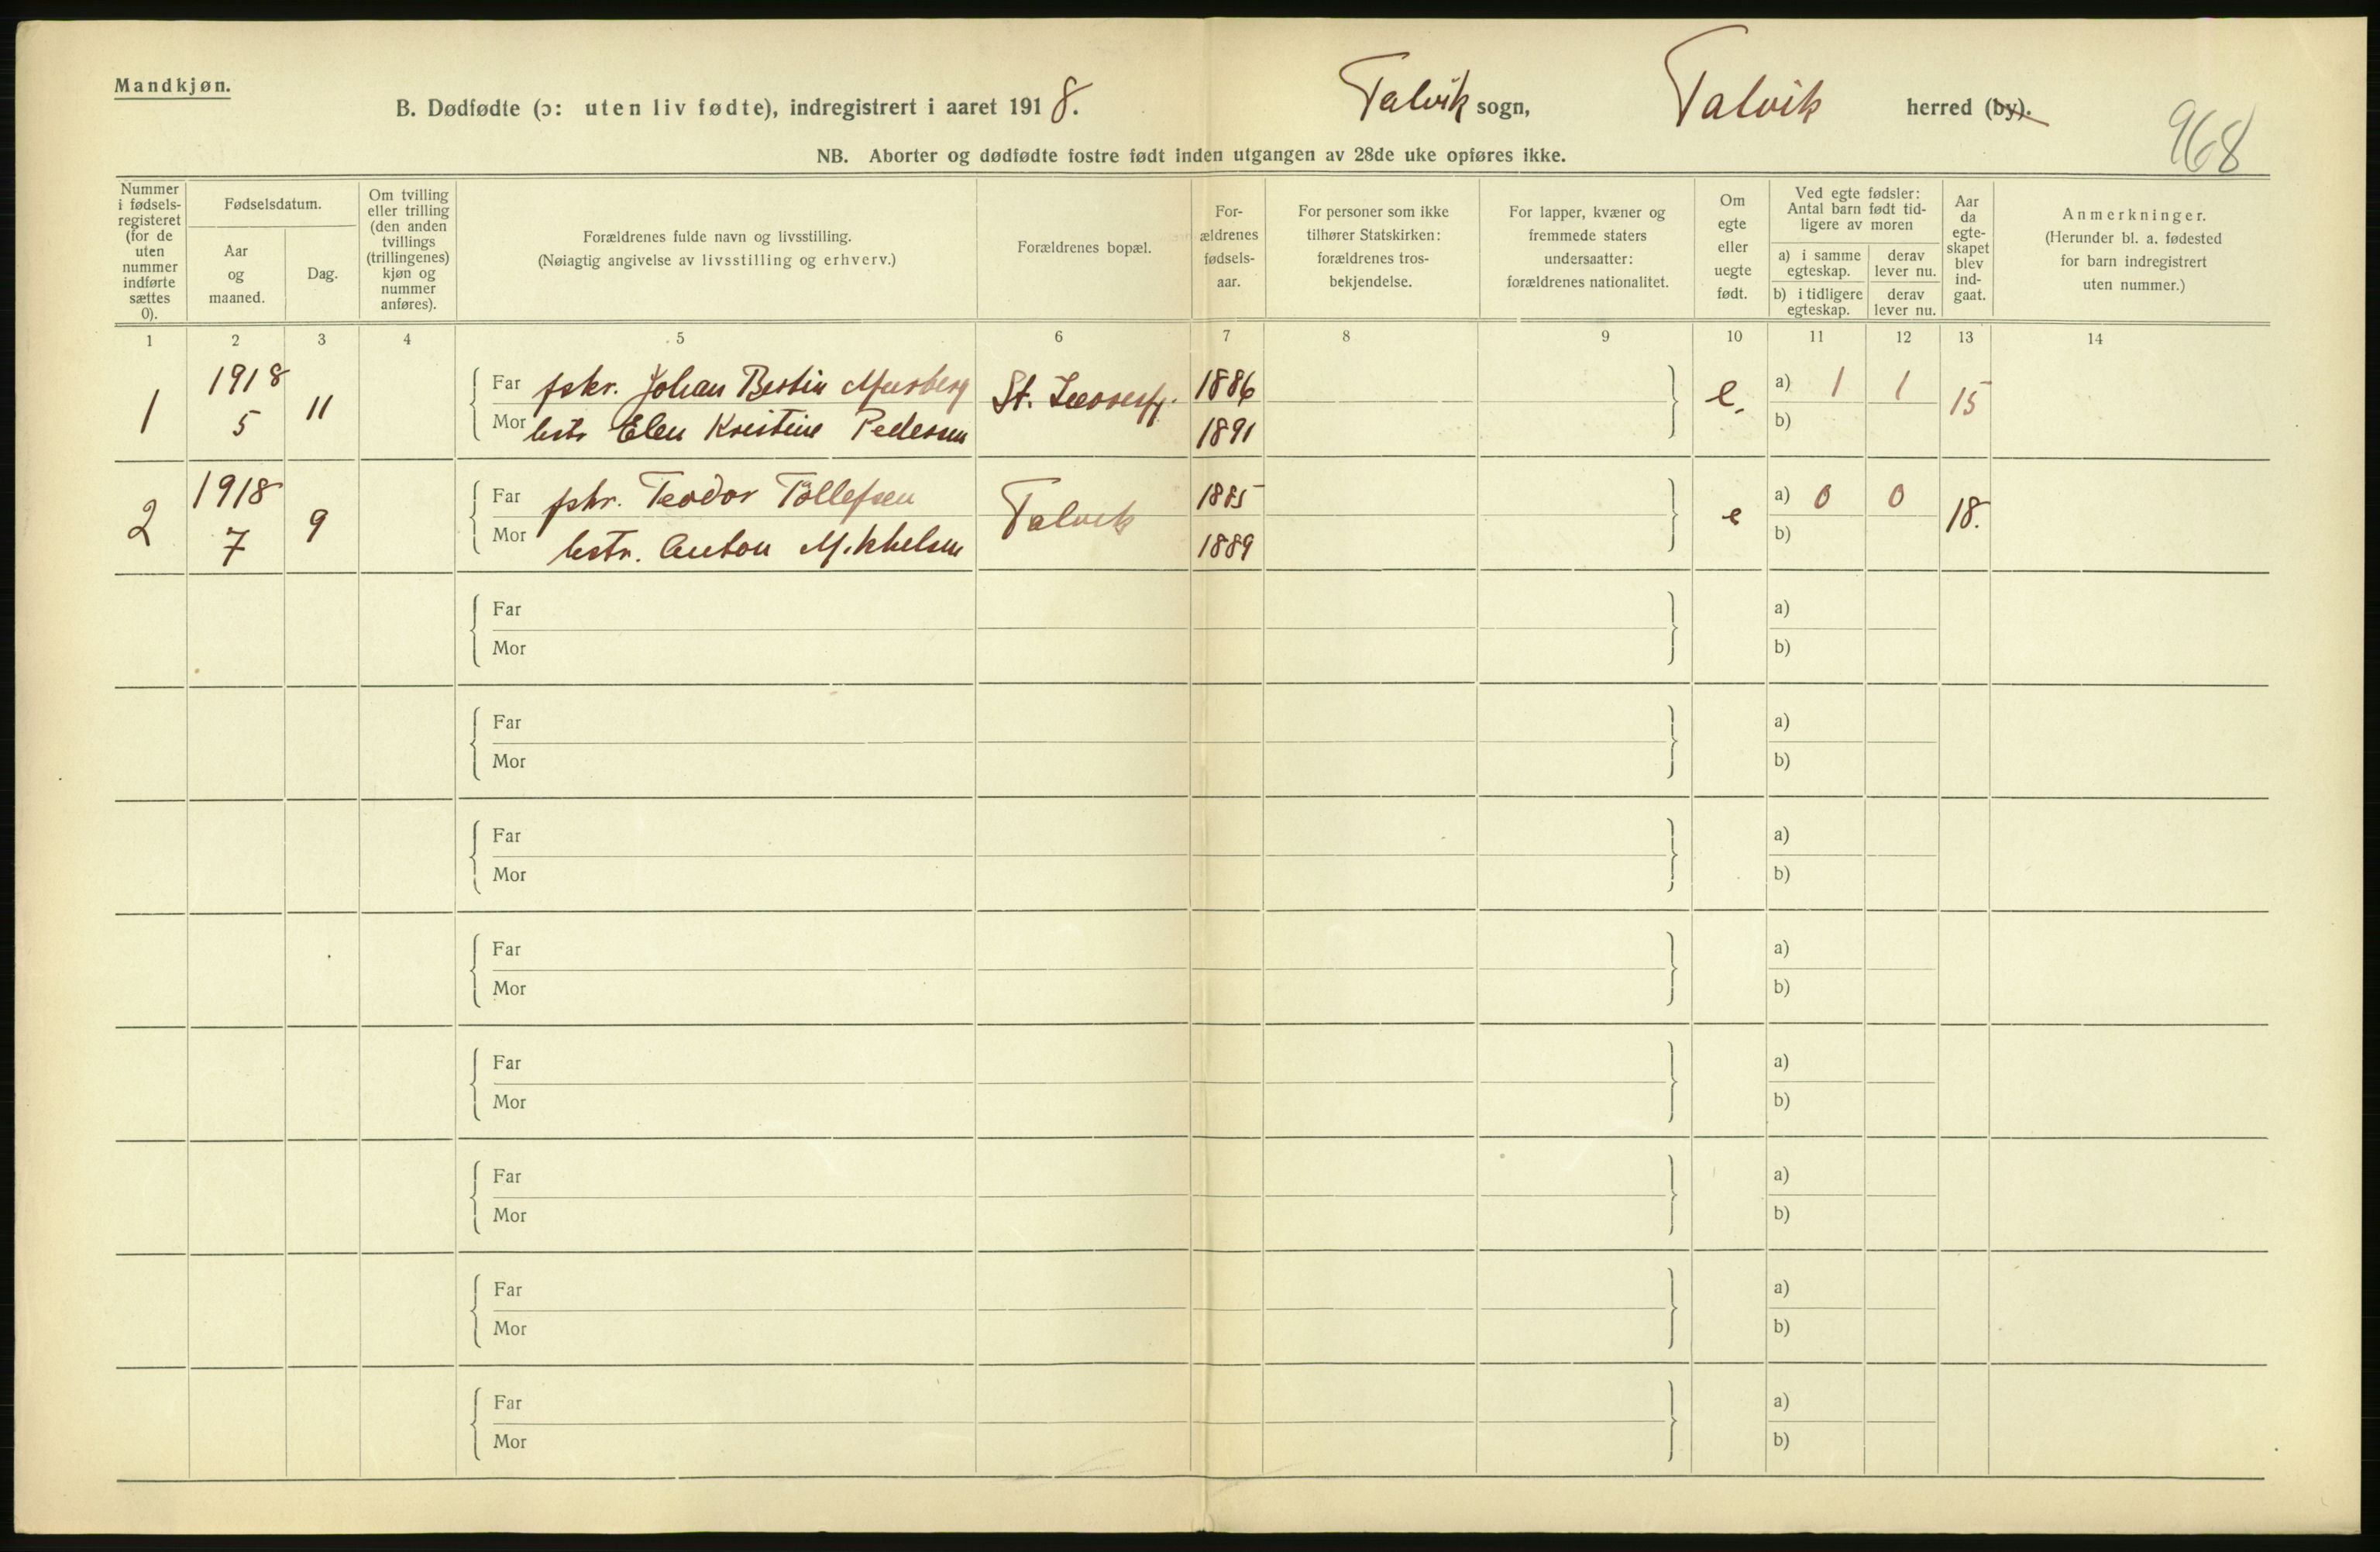 Mandkjøn.
B. Dødfødte (ɔ: uten liv fødte), indregistrert i aaret 1918. Talvik sogn, Talvik herred (by).
968
NB. Aborter og dødfødte fostre født inden utgangen av 28de uke opføres ikke.
Nummer i fødsels-registeret (for de uten nummer indførte sættes 0).
Fødselsdatum.
Aar og maaned.
Dag.
Om tvilling eller trilling (den anden tvillings (trillingenes) kjøn og nummer anføres).
Forældrenes fulde navn og livsstilling.
(Nøiagtig angivelse av livsstilling og erhverv.)
Forældrenes bopæl.
For-ældrenes fødsels-aar.
For personer som ikke tilhører Statskirken: forældrenes tros-bekjendelse.
For lapper, kvæner og fremmede staters undersaatter: forældrenes nationalitet.
Om egte eller uegte født.
Ved egte fødsler: Antal barn født tid-ligere av moren
a) i samme egteskap.
derav lever nu.
b) i tidligere egteskap.
derav lever nu.
Aar da egte-skapet blev ind-gaat.
Anmerkninger.
(Herunder bl. a. fødested for barn indregistrert uten nummer.)
1 2 3 4 5 6 7 8 9 10 11 12 13 14
1 1918 5 11 Far fskr. Johan 1886 e. a) 1 1 15
Mor hstr Elen Kristine Pedersen St. 1891 b)
2 1918 7 9 Far fskr. Teodor Tollefsen Talvik 1885 e a) 0 0 18.
Mor hstr. Anton Mikkelsen 1889 b)
Far a)
Mor b)
Far a)
Mor b)
Far a)
Mor b)
Far a)
Mor b)
Far a)
Mor b)
Far a)
Mor b)
Far a)
Mor b)
Far a)
Mor b)